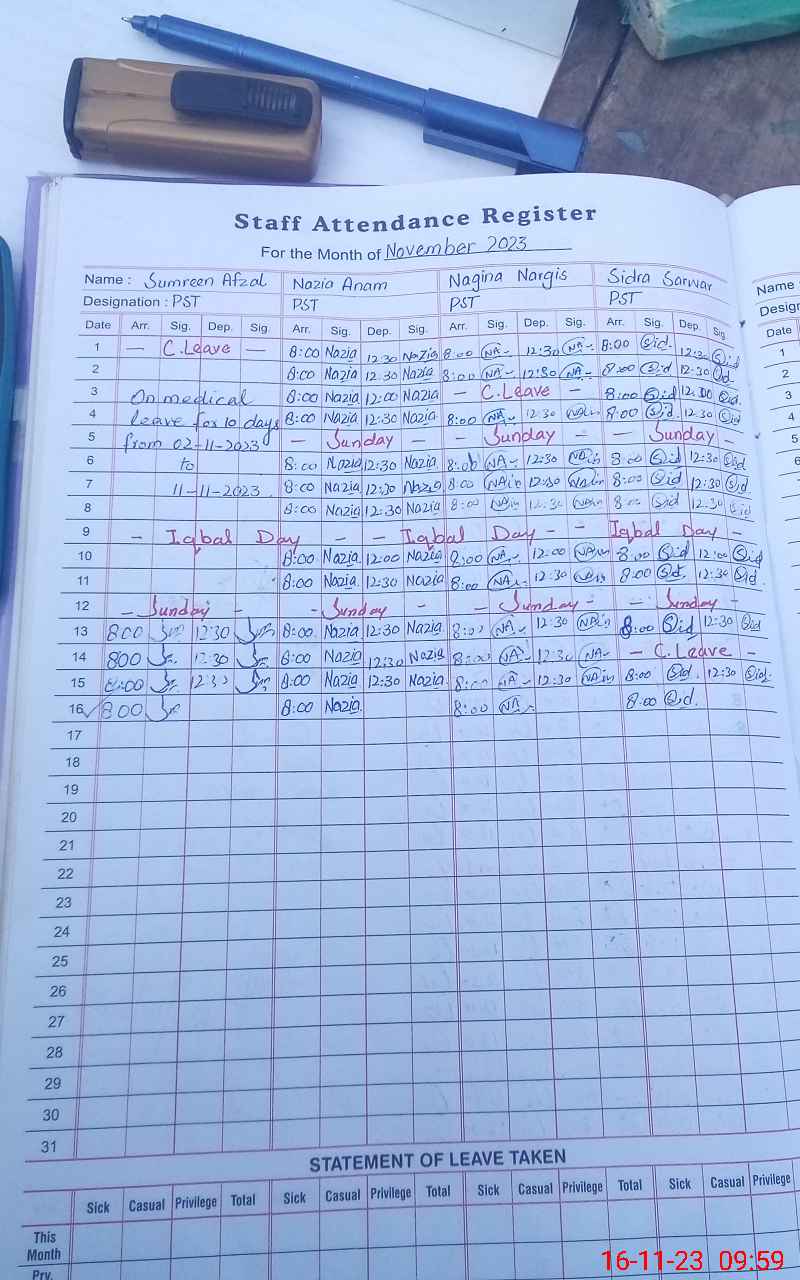 Staff Attendance Register
For the Month of November 2023
Name : Sumreen Afzal Nazia Anam Nagina Nargis Sidra Sarwar Name :
Designation : PST PST PST PST Design
Date Arr. Sig. Dep. Sig. Arr. Sig. Dep. Sig. Arr. Sig. Dep. Sig. Arr. Sig. Dep. Sig. Date
1 — C.Leave — 8:00 Nazia 12:30 Nazia 8:00 NA 12:30 NA 8:00 Sid 12:30 Sid 1
2 8:00 Nazia 12:30 Nazia 8:00 NA 12:30 NA 8:00 Sid 12:30 Sid 2
3 On medical 8:00 Nazia 12:00 Nazia — C.Leave — 8:00 Sid 12:00 Sid 3
4 leave for 10 days 8:00 Nazia 12:30 Nazia 8:00 NA 12:30 8:00 Sid 12:30 Sid 4
5 from 02-11-2023 — Sunday — Sunday — — Sunday — 5
6 to 8:00 Nazia 12:30 Nazia 8:00 NA 12:30 NAin 8:00 Sid 12:30 Sid 6
7 11-11-2023 8:00 Nazia 12:30 Nazia 8:00 NAin 12:30 NAin 8:00 Sid 12:30 Sid 7
8 8:00 Nazia 12:30 Nazia 8:00 NAin 12:30 NAin 8:00 Sid 12:30 Sid 8
9 — Iqbal Day — — Iqbal Day — — Iqbal Day — 9
10 8:00 Nazia 12:00 Nazia 8:00 NA 12:00 NAin 8:00 Sid 12:00 Sid 10
11 8:00 Nazia 12:30 Nazia 8:00 NA 12:30 8:00 Sid 12:30 Sid 11
12 — Sunday — — Sunday — — Sunday — — Sunday — 12
13 800 12:30 8:00 Nazia 12:30 Nazia 8:00 NA 12:30 NAin 8:00 Sid 12:30 Sid 13
14 800 12:30 8:00 Nazia 12:30 Nazia 8:00 NA 12:30 NA — C.Leave — 14
15 8:00 12:30 8:00 Nazia 12:30 Nazia 8:00 NA 12:30 NAin 8:00 Sid 12:30 Sid 15
16 800 8:00 Nazia 8:00 NA 8:00 Sid 16
17
18
19
20
21
22
23
24
25
26
27
28
29
30
31
STATEMENT OF LEAVE TAKEN
Sick Casual Privilege Total Sick Casual Privilege Total Sick Casual Privilege Total Sick Casual Privilege
This Month
Prv.
16-11-23 09:59